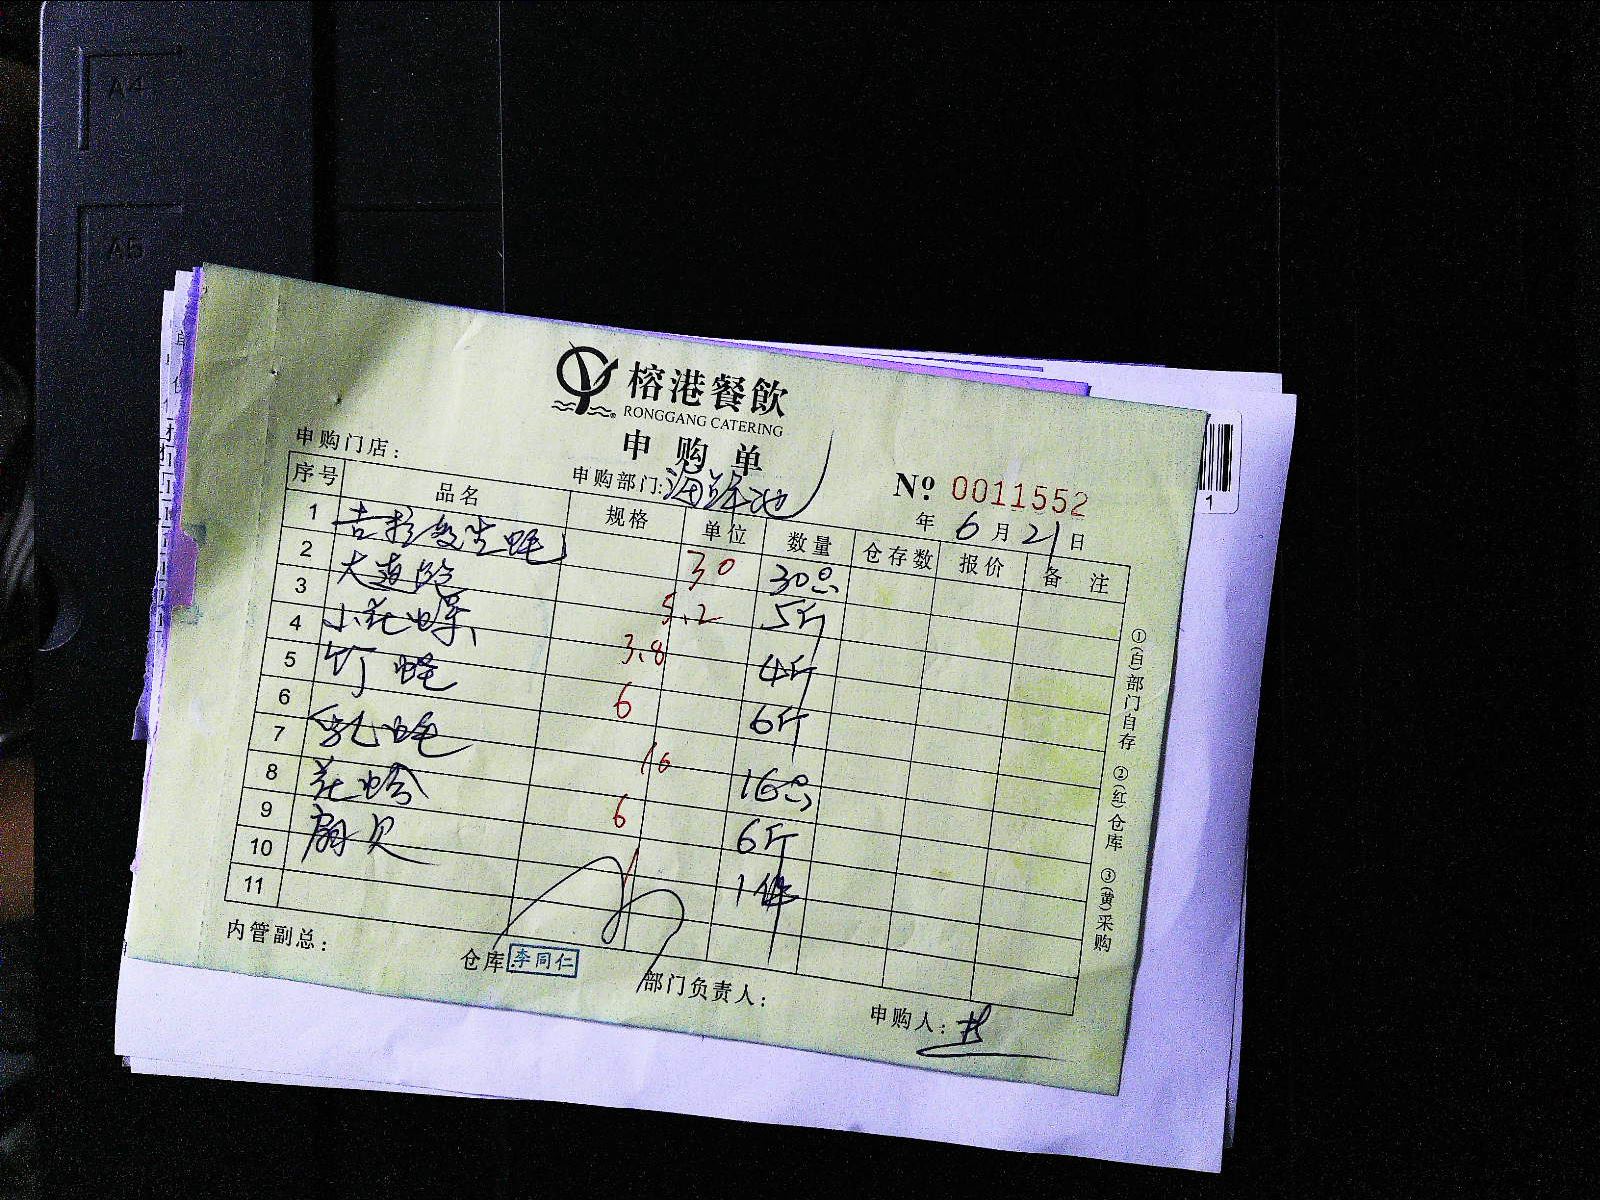 A4
A5
榕港餐飲
RONGGANG CATERING
申购单
申购门店:
申购部门:海鲜池
№ 0011552
年 6 月 21 日
序号 品名 规格 单位 数量 仓存数 报价 备注
1 吉拉多生蚝 30 30只
2 大连鲍 5.2 5斤
3 小花螺 3.8 4斤
4 竹蛏 6 6斤
5
6 乳蚝 16 16只
7 花蛤 6 6斤
8 扇贝 1 1件
9
10
11
内管副总:
仓库:李同仁
部门负责人:
申购人:
①(白)部门自存 ②(红)仓库 ③(黄)采购
1